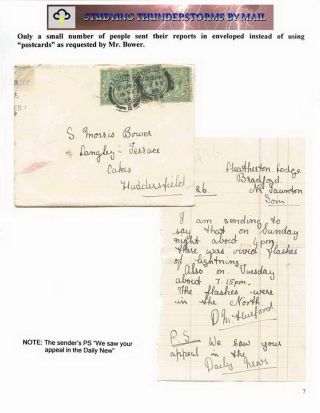 STUDYING THUNDERSTORMS BY MAIL
Only a small number of people sent their reports in enveloped instead of using
"postcards" as requested by Mr. Bower.
S. Morris Bower
Langley-Terrace
Oakes
Huddersfield
Heatherton Lodge
Bradford
Nr Taunton
Som
I am sending to
say that on Sunday
night about 9pm.
there was vivid flashes
of lightning.
Also on Tuesday
about 7.15pm.
The flashes were
in the North.
D. M.
P.S. We saw your
appeal in the
Daily News
NOTE: The sender's PS "We saw your
appeal in the Daily New"
7